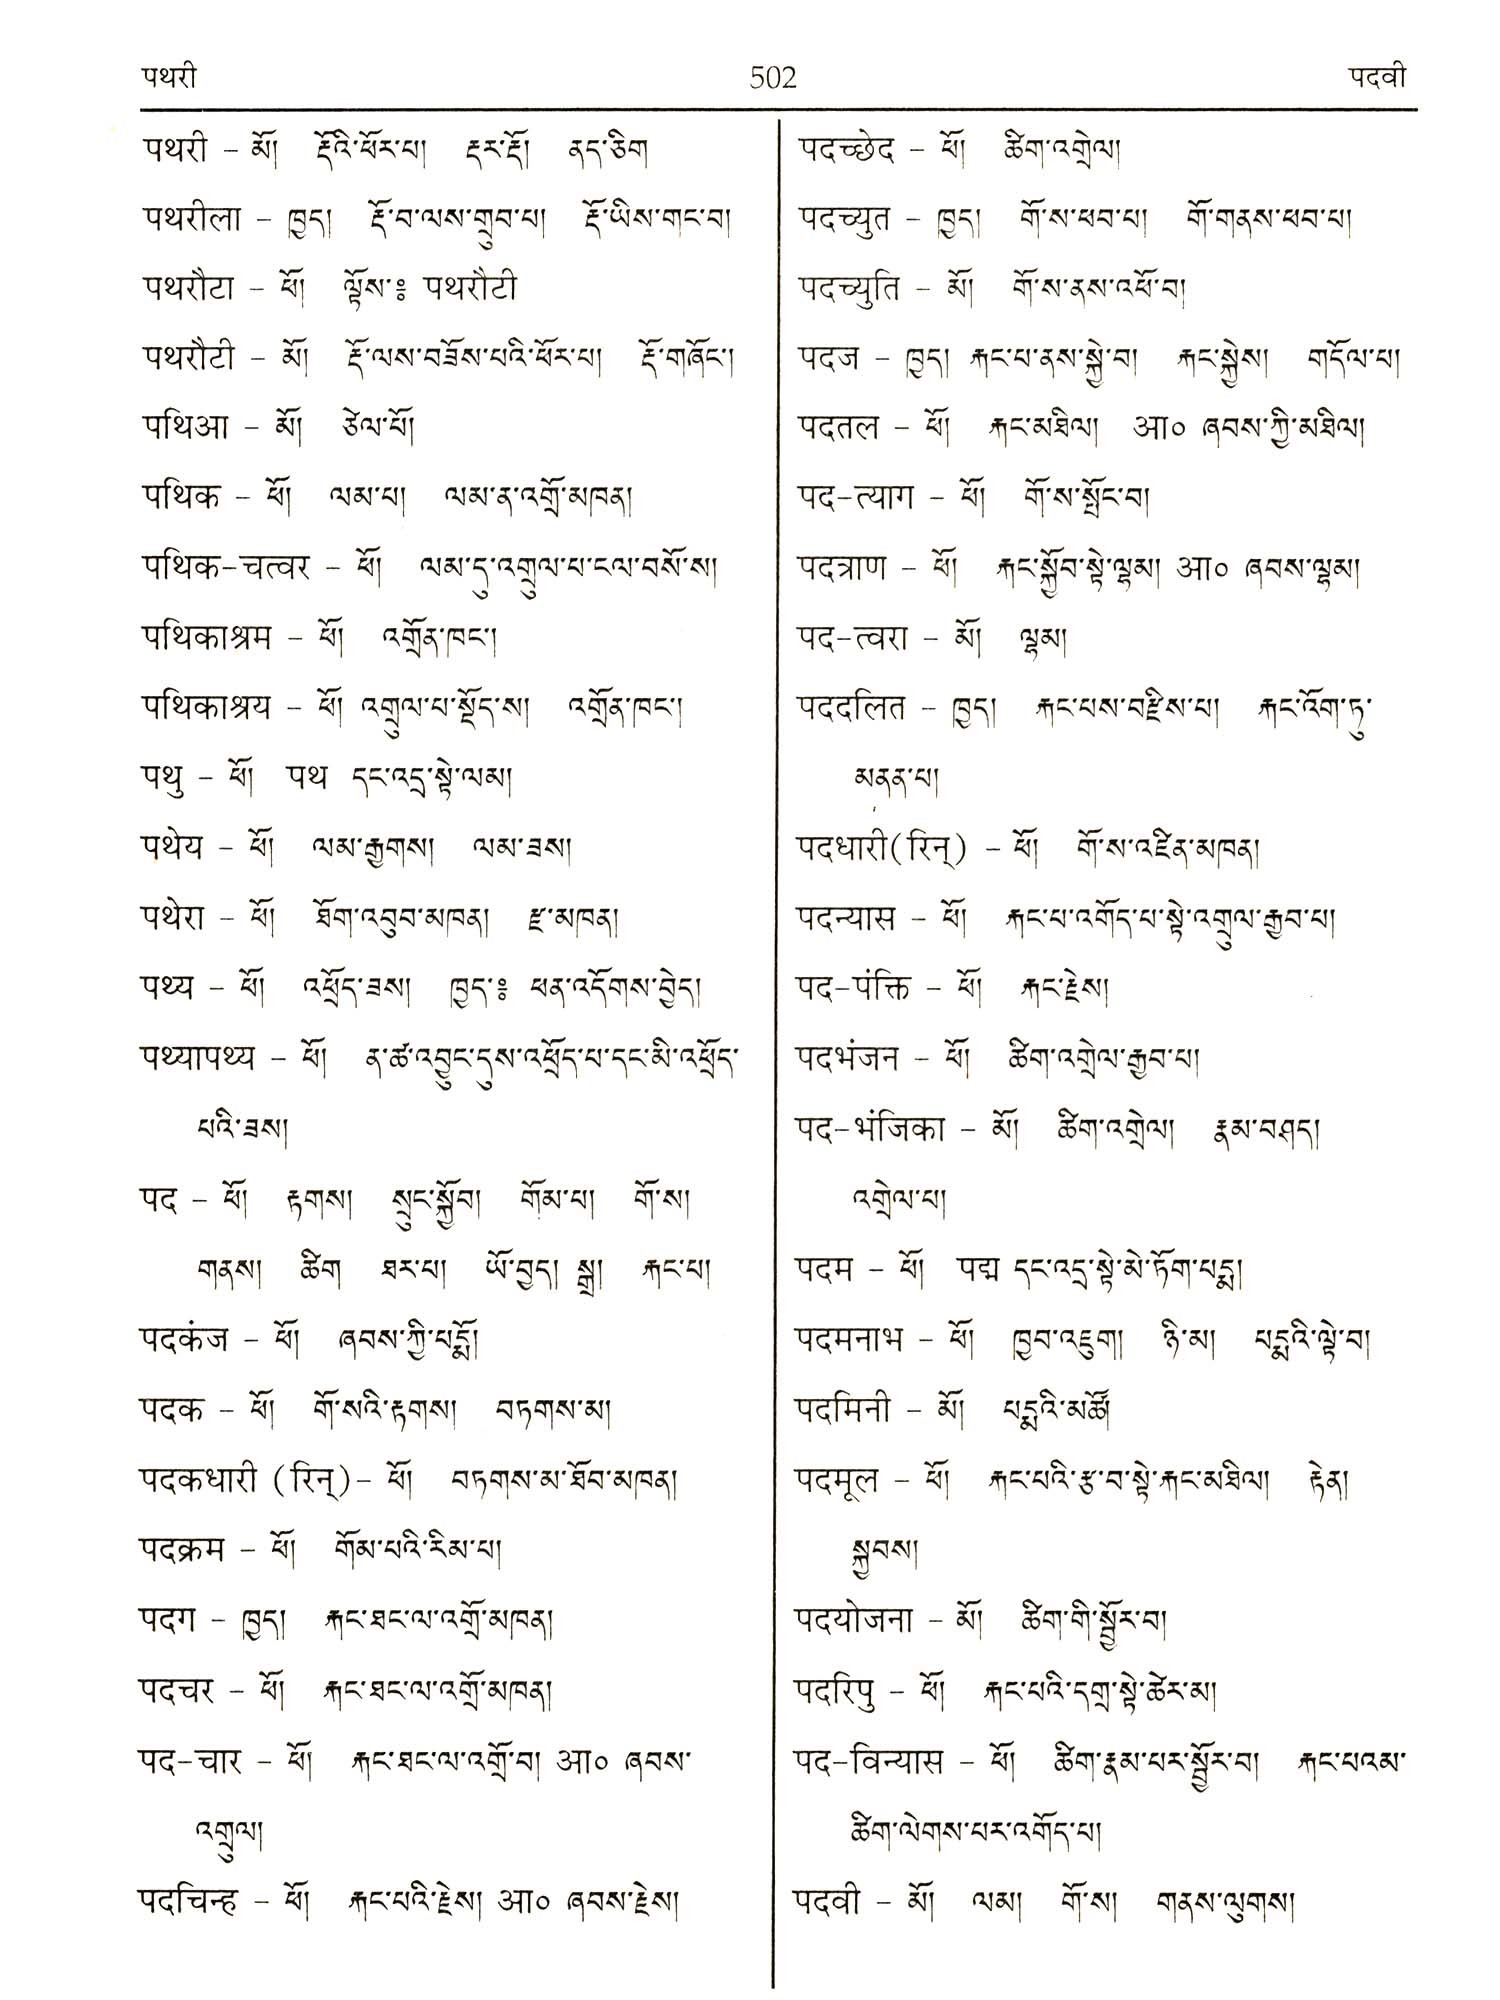 पथरी 502 पदवी
पथरी – མོ། རྡོའི་ཕོར་པ། རྡར་རྡོ། ནད་ཅིག
पथरीला – ཁྱད། རྡོ་བ་ལས་གྲུབ་པ། རྡོ་ཡིས་གང་བ།
पथरौटा – ཕོ། ལྟོས་༔ पथरौटी
पथरौटी – མོ། རྡོ་ལས་བཟོས་པའི་ཕོར་པ། རྡོ་གཞོང་།
पथिआ – མོ། ཙེལ་པོ།
पथिक – ཕོ། ལམ་པ། ལམ་ན་འགྲོ་མཁན།
पथिक-चत्वर – ཕོ། ལམ་དུ་འགྲུལ་པ་ངལ་བསོ་ས།
पथिकाश्रम – ཕོ། འགྲོན་ཁང་།
पथिकाश्रय – ཕོ། འགྲུལ་པ་སྡོད་ས། འགྲོན་ཁང་།
पथु – ཕོ། पथ དང་འདྲ་སྟེ་ལམ།
पथेय – ཕོ། ལམ་རྒྱགས། ལམ་ཟས།
पथेरा – ཕོ། ཐོག་འབུབ་མཁན། རྫ་མཁན།
पथ्य – ཕོ། འཕྲོད་ཟས། ཁྱད་༔ ཕན་འདོགས་བྱེད།
पथ्यापथ्य – ཕོ། ན་ཚ་འབྱུང་དུས་འཕྲོད་པ་དང་མི་འཕྲོད་
པའི་ཟས།
पद – ཕོ། རྟགས། སྲུང་སྐྱོབ། གོམ་པ། གོ་ས།
གནས། ཚིག ཐར་པ། ཡོ་བྱད། སྒྲ། རྐང་པ།
पदकंज – ཕོ། ཞབས་ཀྱི་པདྨོ།
पदक – ཕོ། གོ་སའི་རྟགས། བཏགས་མ།
पदकधारी (रिन्)– ཕོ། བཏགས་མ་ཐོབ་མཁན།
पदक्रम – ཕོ། གོམ་པའི་རིམ་པ།
पदग – ཁྱད། རྐང་ཐང་ལ་འགྲོ་མཁན།
पदचर – ཕོ། རྐང་ཐང་ལ་འགྲོ་མཁན།
पद-चार – ཕོ། རྐང་ཐང་ལ་འགྲོ་བ། आ० ཞབས་
འགྲུལ།
पदचिन्ह – ཕོ། རྐང་པའི་རྗེས། आ० ཞབས་རྗེས།
पदच्छेद – ཕོ། ཚིག་འགྲེལ།
पदच्युत – ཁྱད། གོ་ས་ཕབ་པ། གོ་གནས་ཕབ་པ།
पदच्युति – མོ། གོ་ས་ནས་འཕོ་བ།
पदज – ཁྱད། རྐང་པ་ནས་སྐྱེ་བ། རྐང་སྐྱེས། གདོལ་པ།
पदतल – ཕོ། རྐང་མཐིལ། आ० ཞབས་ཀྱི་མཐིལ།
पद-त्याग – ཕོ། གོ་ས་སྤོང་བ།
पदत्राण – ཕོ། རྐང་སྐྱོབ་སྟེ་ལྷམ། आ० ཞབས་ལྷམ།
पद-त्वरा – མོ། ལྷམ།
पददलित – ཁྱད། རྐང་པས་བརྫིས་པ། རྐང་འོག་ཏུ་
མནན་པ།
पदधारी(रिन्) – ཕོ། གོ་ས་འཛིན་མཁན།
पदन्यास – ཕོ། རྐང་པ་འགོད་པ་སྟེ་འགྲུལ་རྒྱབ་པ།
पद-पंक्ति – ཕོ། རྐང་རྗེས།
पदभंजन – ཕོ། ཚིག་འགྲེལ་རྒྱབ་པ།
पद-भंजिका – མོ། ཚིག་འགྲེལ། རྣམ་བཤད།
འགྲེལ་པ།
पदम – ཕོ། पद्म དང་འདྲ་སྟེ་མེ་ཏོག་པདྨ།
पदमनाभ – ཕོ། ཁྱབ་འཇུག། ཉི་མ། པདྨའི་ལྟེ་བ།
पदमिनी – མོ། པདྨའི་མཚོ།
पदमूल – ཕོ། རྐང་པའི་རྩ་བ་སྟེ་རྐང་མཐིལ། རྟེན།
སྐྱབས།
पदयोजना – མོ། ཚིག་གི་སྦྱོར་བ།
पदरिपु – ཕོ། རྐང་པའི་དགྲ་སྟེ་ཚེར་མ།
पद-विन्यास – ཕོ། ཚིག་རྣམ་པར་སྦྱོར་བ། རྐང་པའམ་
ཚིག་ལེགས་པར་འགོད་པ།
पदवी – མོ། ལམ། གོ་ས། གནས་ལུགས།